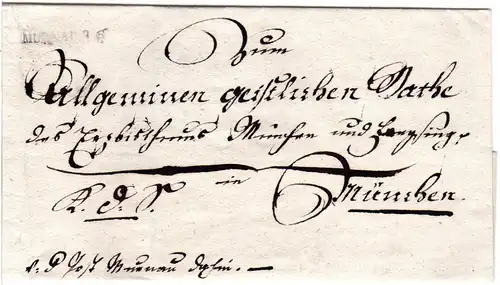 MURNAU
Zum
Allgemeinen geistlichen Rathe
des Erzbisthums München und Freysing
in
K. d. S. München.
v. d Post Murnau dahin.